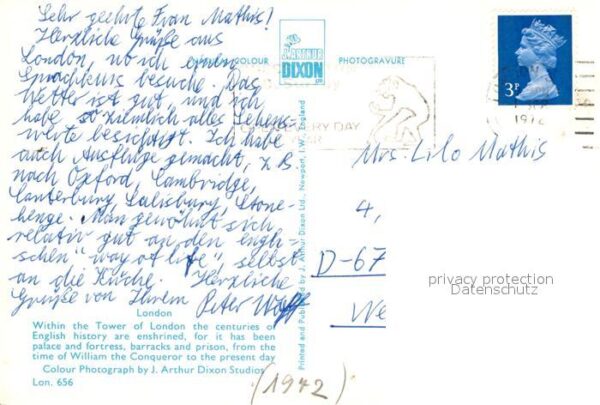 Sehr geehrte Frau Mathis!
Herzliche Grüße aus
London, wo ich einen
Sprachkurs besuche. Das
Wetter ist gut, und ich
habe so ziemlich alles Sehens-
werte besichtigt. Ich habe
auch Ausflüge gemacht, z.B.
nach Oxford, Cambridge,
Canterbury, Salisbury, Stone-
henge. Man gewöhnt sich
relativ gut an den engli-
schen "way of life", selbst
an die Küche. Herzliche
Grüße von Ihrem Peter
London
Within the Tower of London the centuries of
English history are enshrined, for it has been
palace and fortress, barracks and prison, from the
time of William the Conqueror to the present day
Colour Photograph by J. Arthur Dixon Studios
Lon. 656
COLOUR
J. ARTHUR
DIXON
PHOTOGRAVURE
Printed and Published by J. Arthur Dixon Ltd., Newport, I.W., England
3P
1972
DAY
Mrs. Lilo Mathis
4,
D-67
We
privacy protection
Datenschutz
(1972)